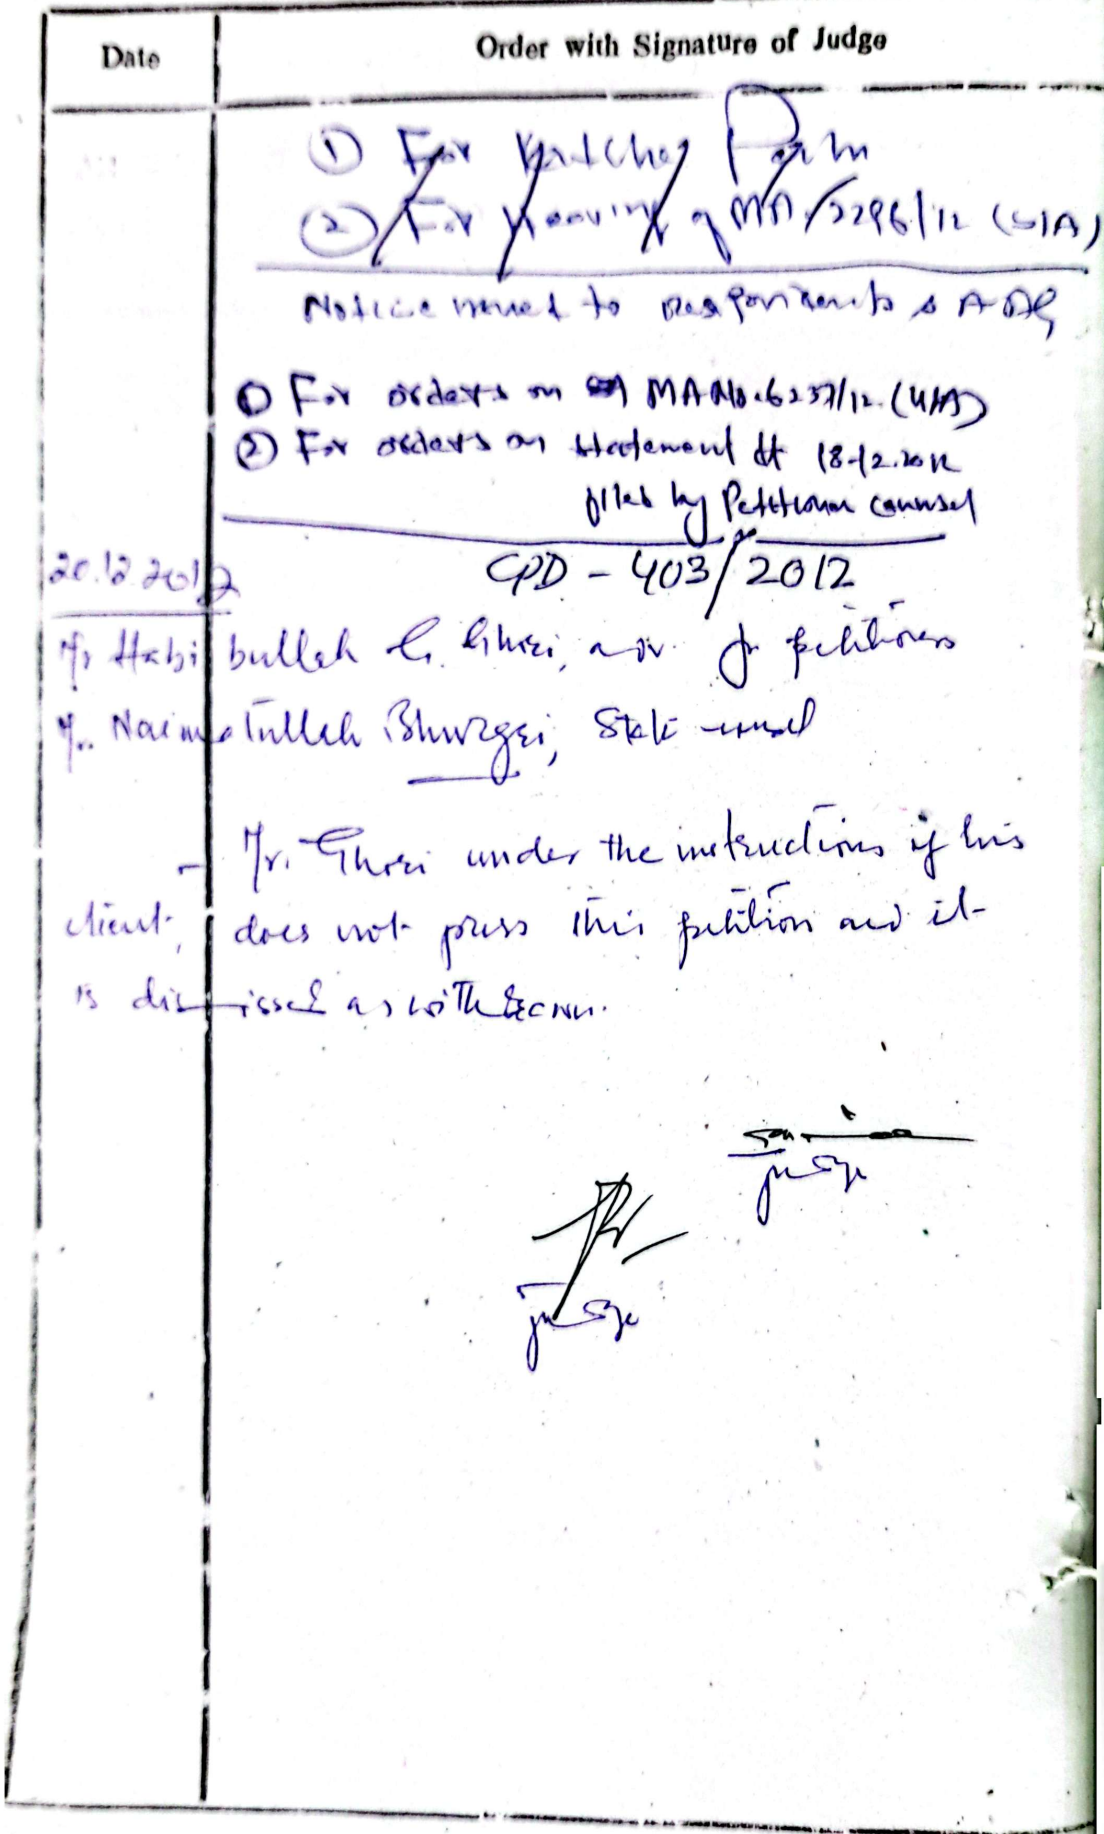 Date
Order with Signature of Judge
① For Katcha Peshi
② For Hearing of MA 2296/12 (S/A)
Notice issued to Respondents & AAG
① For orders on MA No. 6237/12 (U/A)
② For orders on statement dt 18-12.2012
filed by Petitioner counsel
20.12.2012
CPD - 403/2012
Mr. Habibullah G. Ghori, adv. for petitioners
Mr. Naimatullah Bhurgri, State counsel
- Mr. Ghori under the instructions of his
client, does not press this petition and it
is dismissed as withdrawn.
Judge
Judge